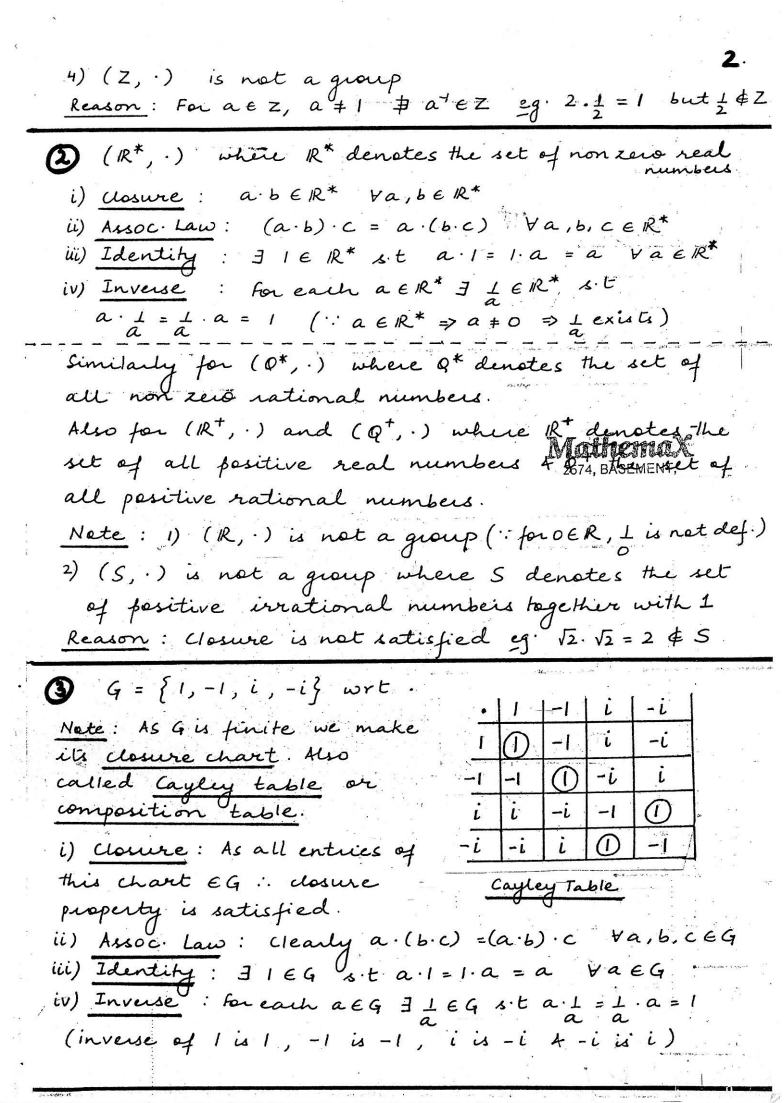 2.
4) (Z, ·) is not a group
Reason : For a ∈ Z, a ≠ 1 ∄ a⁻¹ ∈ Z eg. 2·1/2 = 1 but 1/2 ∉ Z
② (R*, ·) where R* denotes the set of non zero real
numbers
i) Closure : a·b ∈ R* ∀a,b ∈ R*
ii) Assoc. Law : (a·b)·c = a·(b·c) ∀ a,b,c ∈ R*
iii) Identity : ∃ 1 ∈ R* s.t a·1 = 1·a = a ∀ a ∈ R*
iv) Inverse : For each a ∈ R* ∃ 1/a ∈ R* s.t
a·1/a = 1/a·a = 1 (∵ a ∈ R* ⇒ a ≠ 0 ⇒ 1/a exists)
Similarly for (Q*, ·) where Q* denotes the set of
all non zero rational numbers.
Also for (R⁺, ·) and (Q⁺, ·) where R⁺ denotes the
set of all positive real numbers & set of
MathemaX
2674, BASEMENT,
all positive rational numbers.
Note : 1) (R, ·) is not a group (∵ for 0 ∈ R, 1/0 is not def.)
2) (S, ·) is not a group where S denotes the set
of positive irrational numbers together with 1
Reason : Closure is not satisfied eg. √2·√2 = 2 ∉ S
③ G = {1, -1, i, -i} wrt ·
Note : As G is finite we make
its closure chart. Also
called Cayley table or
composition table.
i) Closure : As all entries of
this chart ∈ G ∴ closure
property is satisfied.
· 1 -1 i -i
1 ① -1 i -i
-1 -1 ① -i i
i i -i -1 ①
-i -i i ① -1
Cayley Table
ii) Assoc. Law : Clearly a·(b·c) = (a·b)·c ∀a,b,c ∈ G
iii) Identity : ∃ 1 ∈ G s.t a·1 = 1·a = a ∀ a ∈ G
iv) Inverse : For each a ∈ G ∃ 1/a ∈ G s.t a·1/a = 1/a·a = 1
(inverse of 1 is 1, -1 is -1, i is -i & -i is i)